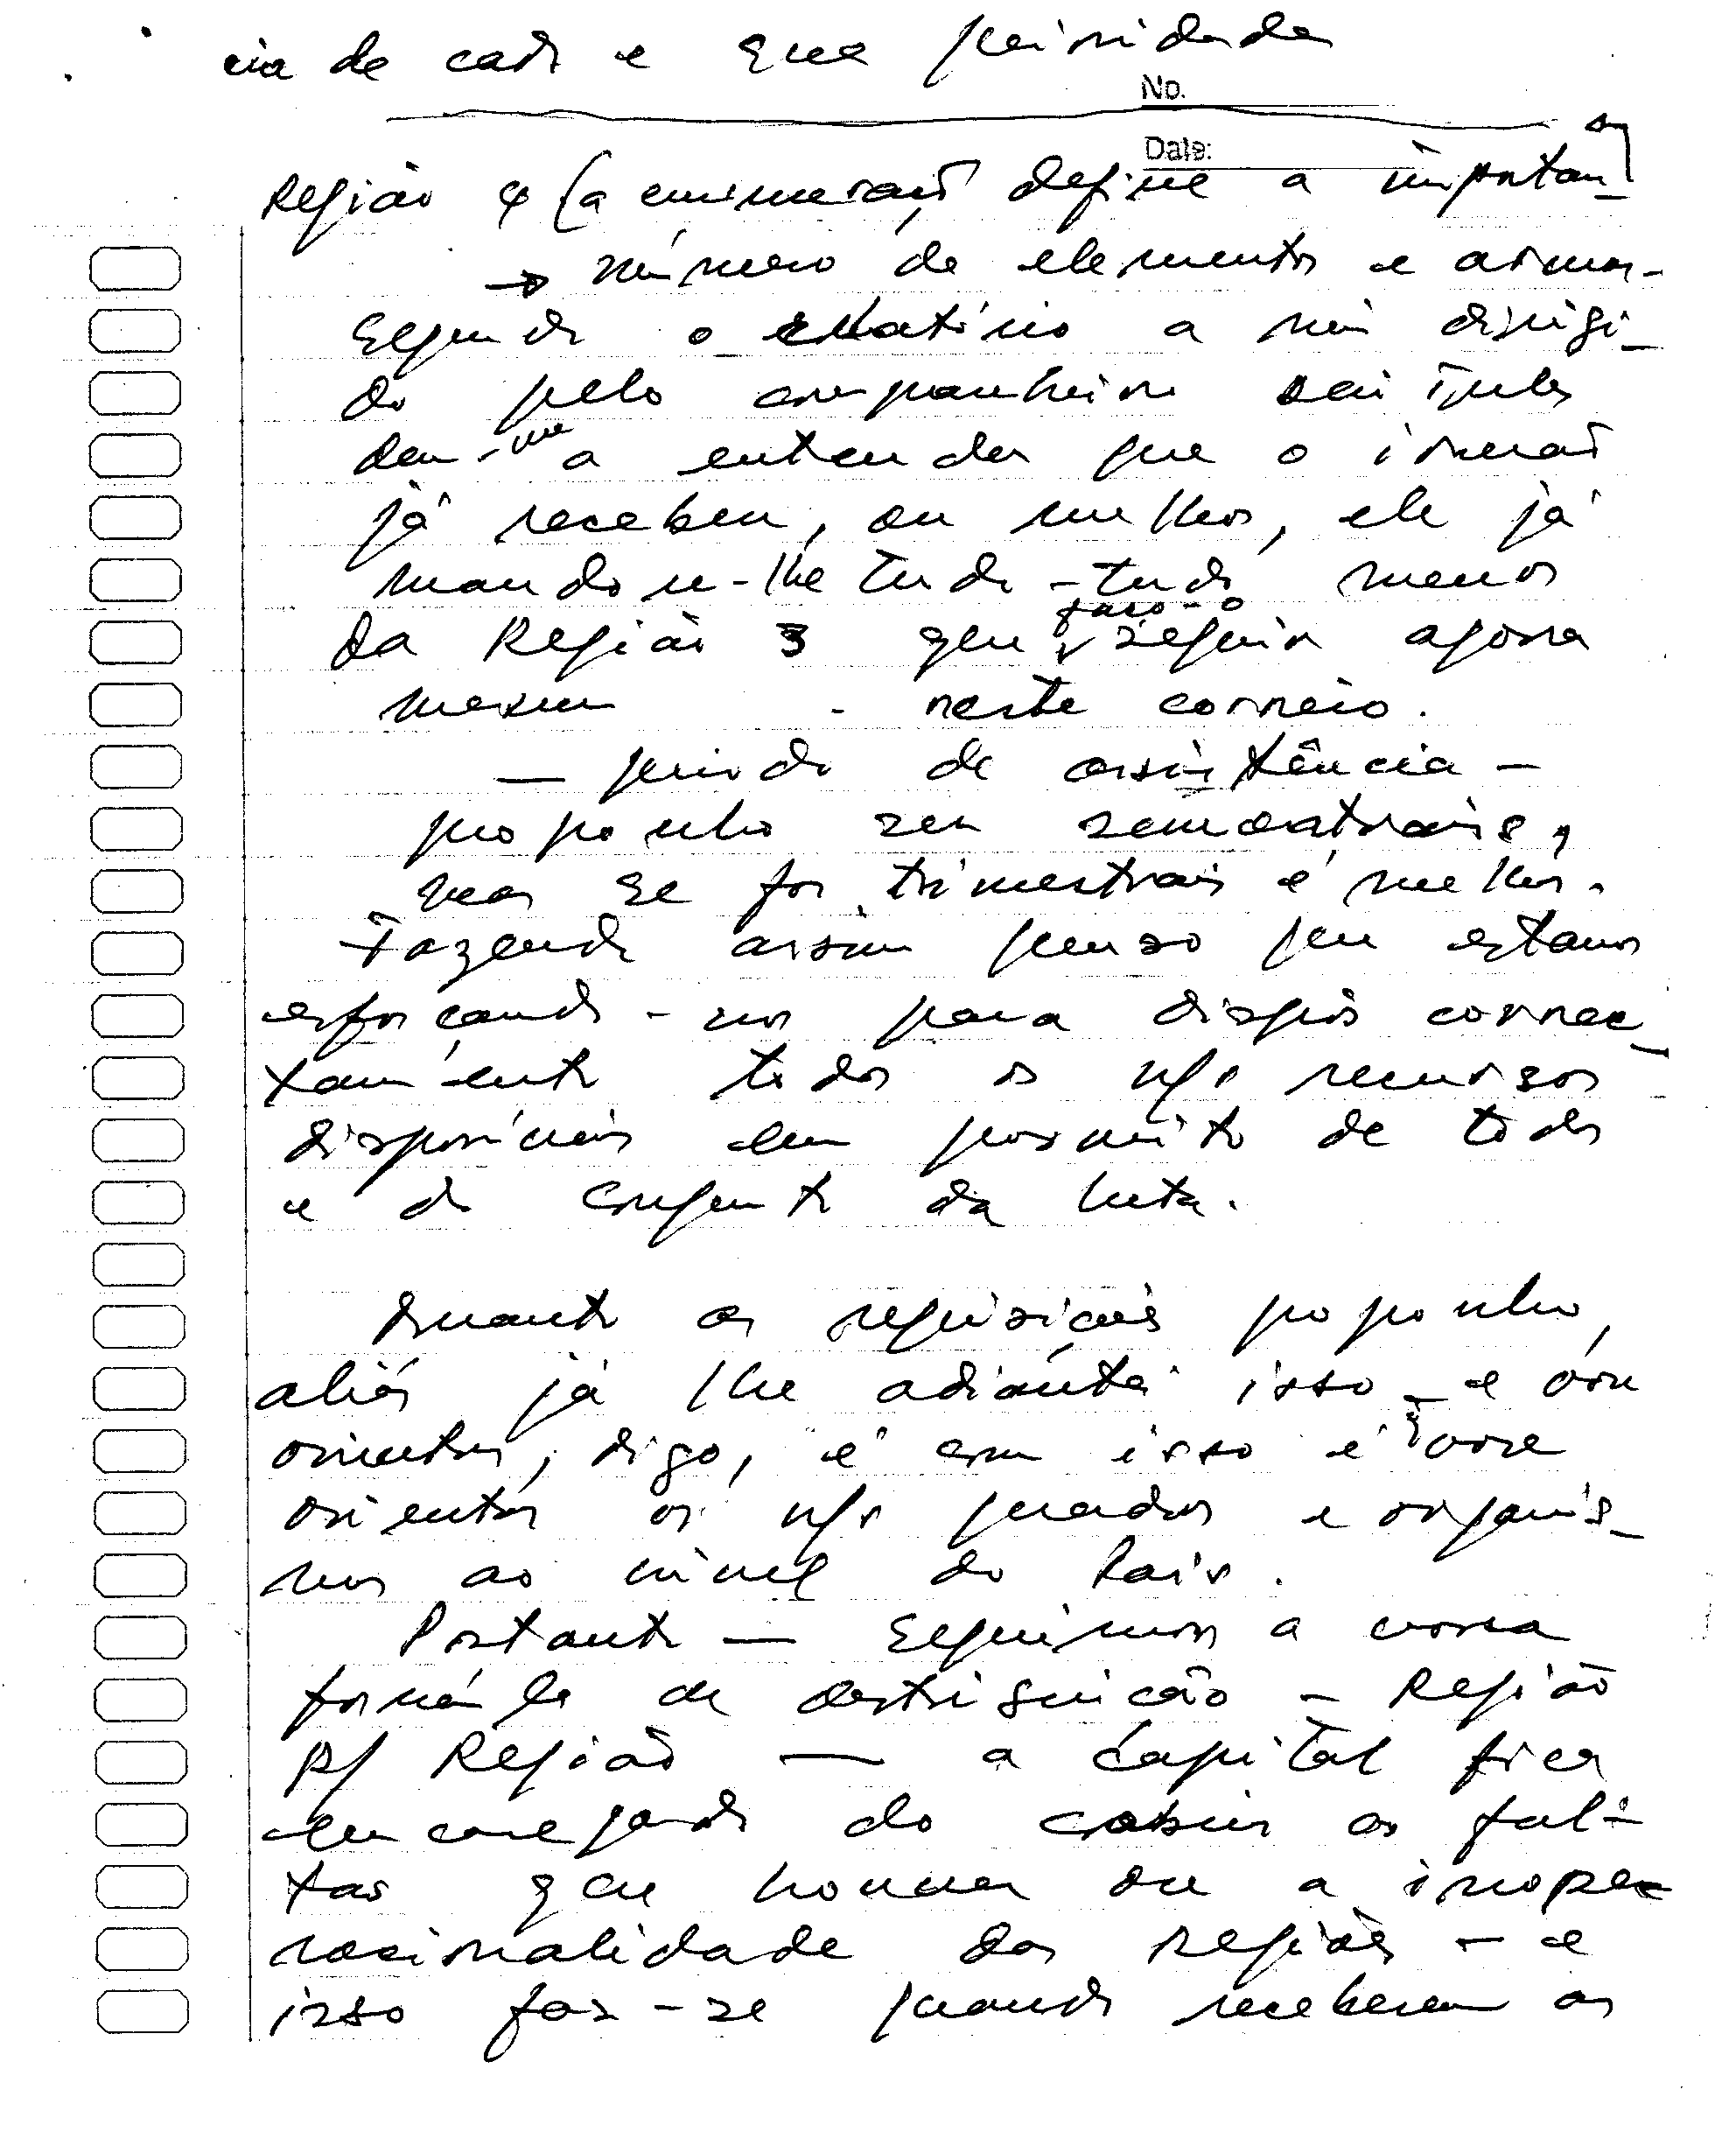 cia de cada e sua prioridade
No.
Date:
Região 4 (a enumeração define a importan-
→ número de elementos e armas -
Segundo o relatório a mim dirigi-
do pelo companheiro
deu-me a entender que o irmão
já recebeu, ou melhor, ele já
mandou-lhe tudo - tudo menos
da Região 3 que faço-o seguir agora
mesmo - neste correio.
— período de assistência -
proponho ser semestrais,
mas se for trimestrais é melhor.
Fazendo assim penso que estamos
esforçando-nos para dispôr correc-
tamente todos os n/s recursos
disponíveis em proveito de todos
e do conjunto da luta.
Quanto as requisições proponho,
aliás já lhe adiantei isso - e
orientar, digo, é com isso é
orientar os n/s quadros e organis-
mos ao nível do País.
Portanto — Seguimos a vossa
fórmula de distribuição - Região
p/ Região — a Capital fica
encarregando de cobrir as fal-
tas que houver ou a inope-
racionalidade das regiões - e
isso faz-se quando receberem as